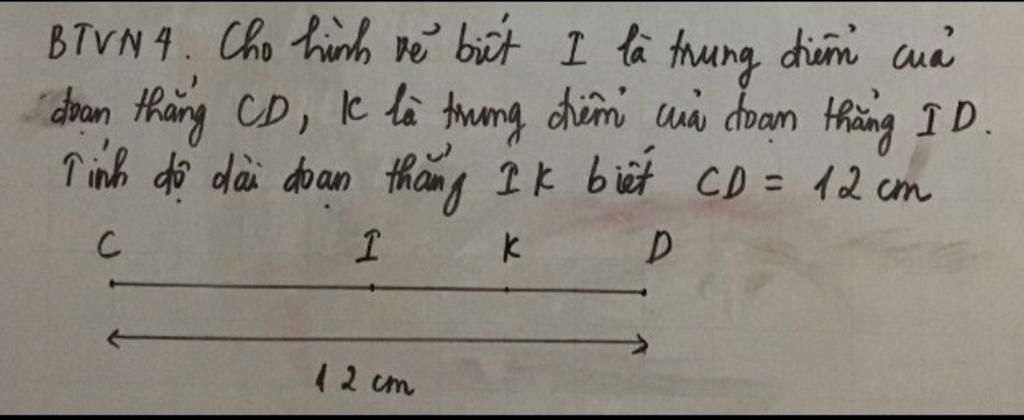 BTVN 4. Cho hình vẽ biết I là trung điểm của
đoạn thẳng CD, K là trung điểm của đoạn thẳng ID.
Tính độ dài đoạn thẳng IK biết CD = 12 cm
C I K D
12 cm